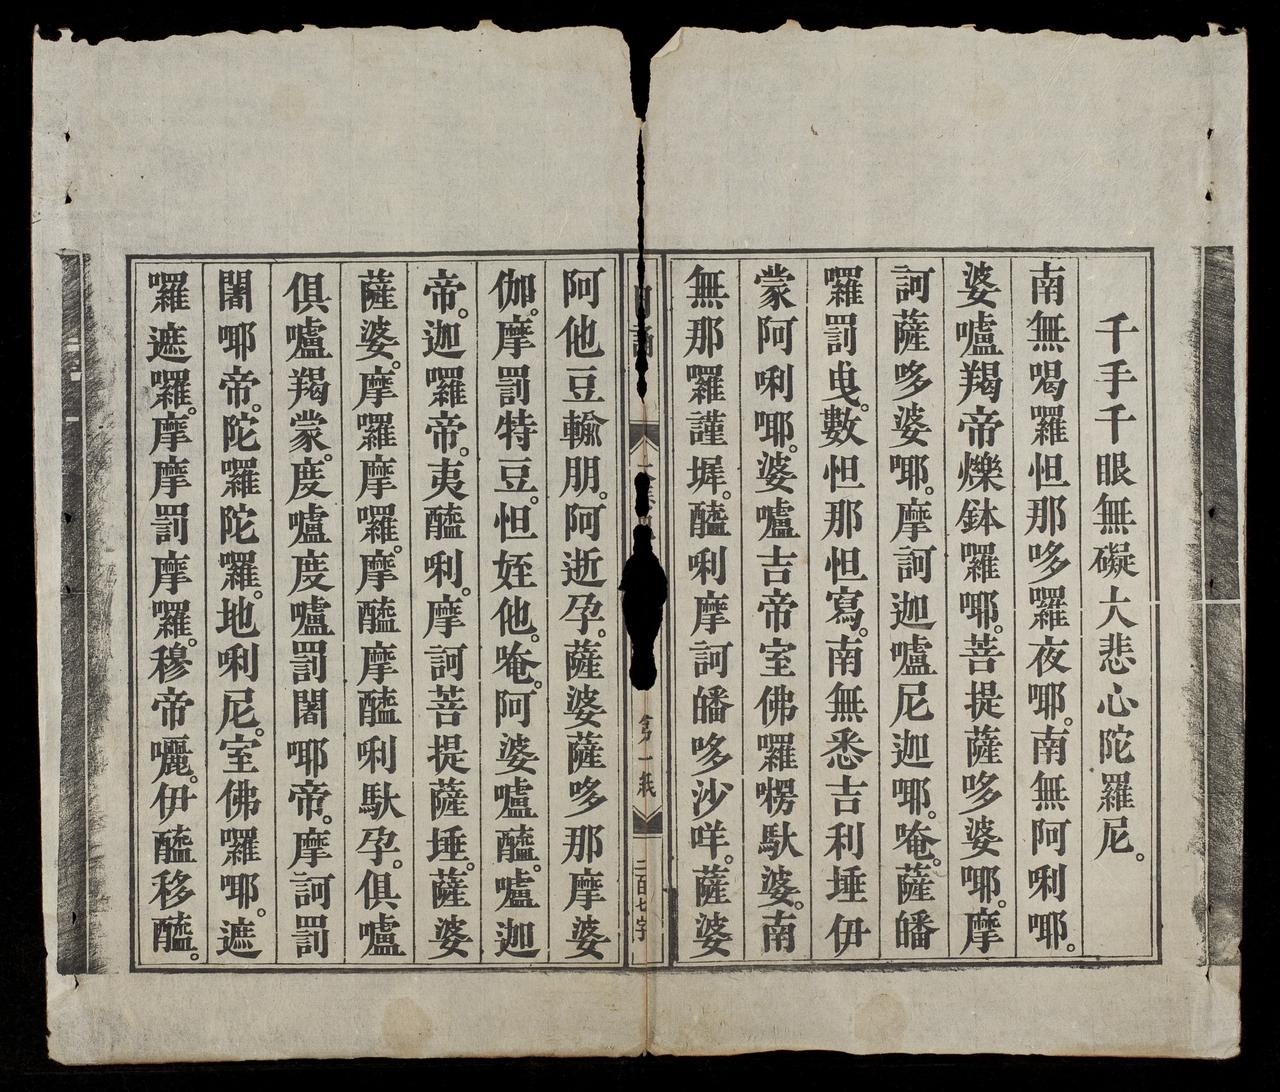 千手千眼無礙大悲心陀羅尼。
南無喝羅怛那哆羅夜㖿。南無阿唎㖿。
婆嚧羯帝爍鉢羅㖿。菩提薩哆婆㖿。摩
訶薩哆婆㖿。摩訶迦嚧尼迦㖿。唵。薩皤
囉罰曳。數怛那怛寫。南無悉吉利埵伊
蒙阿唎㖿。婆嚧吉帝室佛囉楞馱婆。南
無那囉謹墀。醯唎摩訶皤哆沙咩。薩婆
阿他豆輸朋。阿逝孕。薩婆薩哆那摩婆
伽。摩罰特豆。怛姪他。唵。阿婆嚧醯。嚧迦
帝。迦羅帝。夷醯唎。摩訶菩提薩埵。薩婆
薩婆。摩囉摩囉。摩醯摩醯唎馱孕。俱嚧
俱嚧羯蒙。度嚧度嚧罰闍耶帝。摩訶罰
闍耶帝。陀囉陀囉。地唎尼。室佛囉耶。遮
囉遮囉。摩摩罰摩囉。穆帝囇。伊醯移醯。
第一紙
二百七字